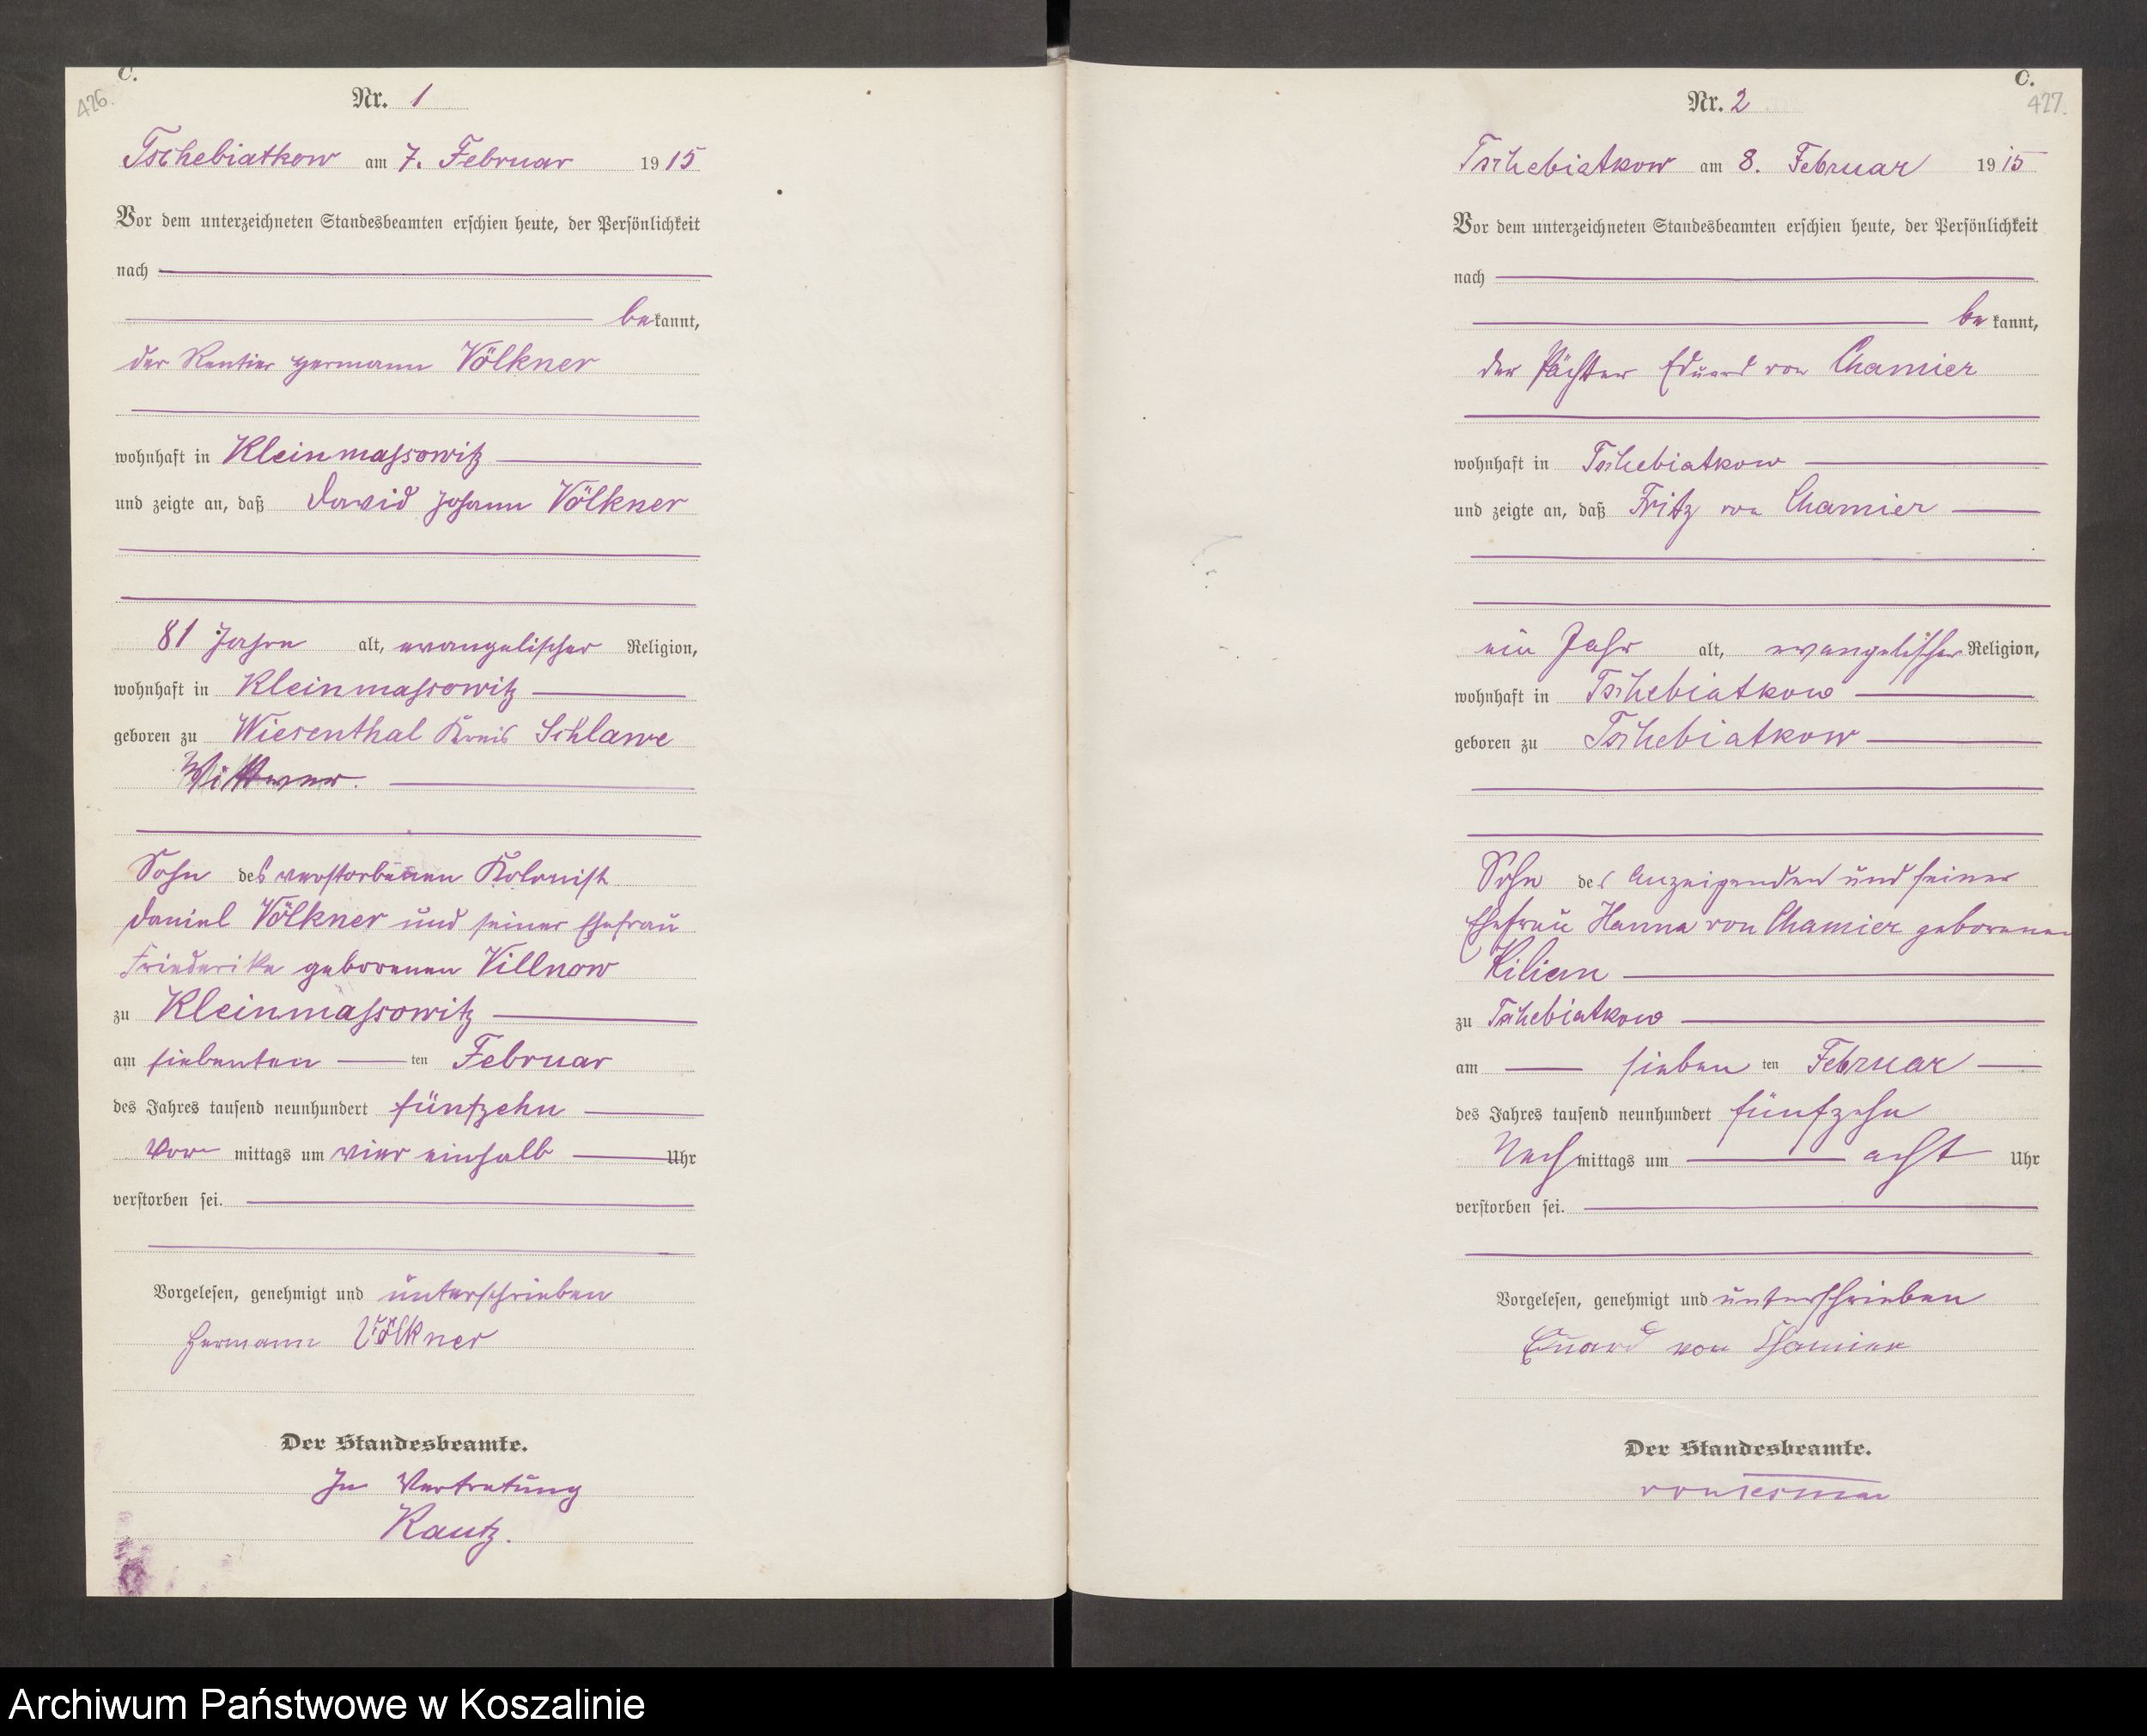 C.
426.
Nr. 1
Tschebiatkow am 7. Februar 1915
Vor dem unterzeichneten Standesbeamten erschien heute, der Persönlichkeit
nach
bekannt,
der Rentier Hermann Völkner
wohnhaft in Kleinmassowitz
und zeigte an, daß David Johann Völkner
81 Jahre alt, evangelischer Religion,
wohnhaft in Kleinmassowitz
geboren zu Wiesenthal Kreis Schlawe
Wittwer.
Sohn des verstorbenen Kolonist
Daniel Völkner und seiner Ehefrau
Friederike geborenen Villnow
zu Kleinmassowitz
am siebenten ten Februar
des Jahres tausend neunhundert fünfzehn
Vor mittags um vier einhalb Uhr
verstorben sei.
Vorgelesen, genehmigt und unterschrieben
Hermann Völkner
Der Standesbeamte.
In Vertretung
Kautz.
C.
427.
Nr. 2
Tschebiatkow am 8. Februar 1915
Vor dem unterzeichneten Standesbeamten erschien heute, der Persönlichkeit
nach
bekannt,
der Pächter Eduard von Chamier
wohnhaft in Tschebiatkow
und zeigte an, daß Fritz von Chamier
ein Jahr alt, evangelischer Religion,
wohnhaft in Tschebiatkow
geboren zu Tschebiatkow
Sohn des Anzeigenden und seiner
Ehefrau Hanna von Chamier geborenen
Kilian
zu Tschebiatkow
am sieben ten Februar
des Jahres tausend neunhundert fünfzehn
Nachmittags um acht Uhr
verstorben sei.
Vorgelesen, genehmigt und unterschrieben
Eduard von Chamier
Der Standesbeamte.
Archiwum Państwowe w Koszalinie